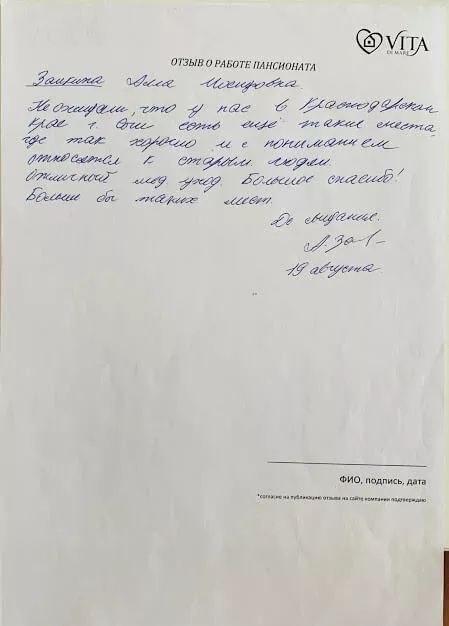 VITA
DI MARE
ОТЗЫВ О РАБОТЕ ПАНСИОНАТА
Алла
Не ожидали, что у нас в Краснодарском
крае г. Сочи есть ещё такие места,
где так хорошо и с пониманием
относятся к старым людям.
Отличный мед уход. Большое спасибо!
Больше бы таких мест.
До свидания.
19 августа
ФИО, подпись, дата
*согласие на публикацию отзыва на сайте компании подтверждаю